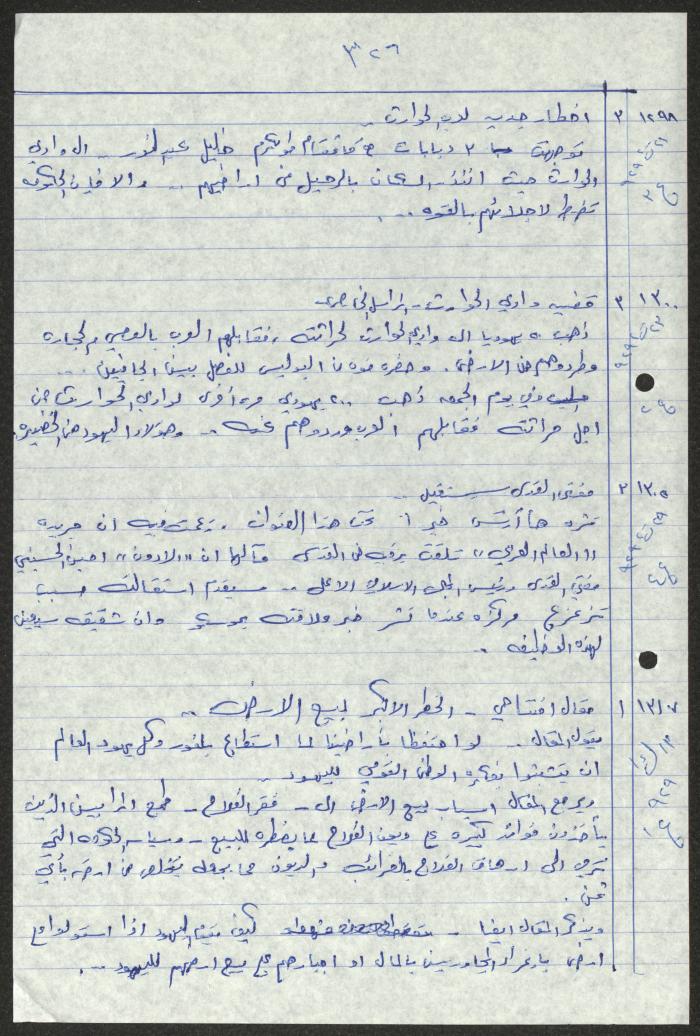 ٣٢٦
١٢٩٨ ٣ اخطار جديد لعرب الحوارث ..
توجهت ٣ دبابات مع قائمقام طولكرم خليل عبد النور .. الى وادي
الحوارث حيث انذر السكان بالرحيل من اراضيهم .. والا فان الحكومة
تضطر لاجلائهم بالقوه ...
١٣٠٠ ٣ قضيه وادي الحوارث - لمراسل الخاص
ذهب ٥٠ يهوديا الى وادي الحوارث لحراثته ، فقابلهم العرب بالعصي والحجاره
وطردوهم من الارض . وحضره قوه من البوليس للفصل بين الجانبين ...
وفي يوم الجمعه ذهب ٢٠٠ يهودي مره اخرى لوادي الحوارث من
اجل حراثته فقابلهم العرب وردوهم عنه .. وهؤلاء اليهود من الخضيره.
١٣٠٥ ٢ مفتي القدس سيستقيل ..
نشره هآرتس خبرا تحت هذا العنوان . زعمت فيه ان جريده
"العالم العربي" تلقت برقيه من القدس مآلها ان "الادون" امين الحسيني
مفتي القدس ورئيس المجلس الاسلامي الاعلى .. سيقدم استقالته بسبب
تزعزع مركزه عندما نشر خبر علاقته بموسي وان شقيقه سيعين
لهذه الوظيفه ..
١٣١٧ ١ مقال افتتاحي - الخطر الاكبر لبيع الارض ..
يقول المقال .. لو احتفظنا بأراضينا لما استطاع بلفور وكل يهود العالم
ان يتشبثوا بفكره الوطن القومي لليهود ..
ويرجع المقال اسباب بيع الارض الى - فقر الفلاح - طمع المرابيين الذين
يأخذون فوائد كبيره على ديون الفلاح مما يضطره للبيع - وسياسه الحكومه التي
ترمي الى ارهاق الفلاح بالضرائب والديون مما يجعله يتخلص من ارضه بأي
ثمن .
ويذكر المقال ايضا - كيف يقوم اليهود اذا استولوا على
ارض باغراء المجاورين بالمال او اجبارهم على بيع ارضهم لليهود ...